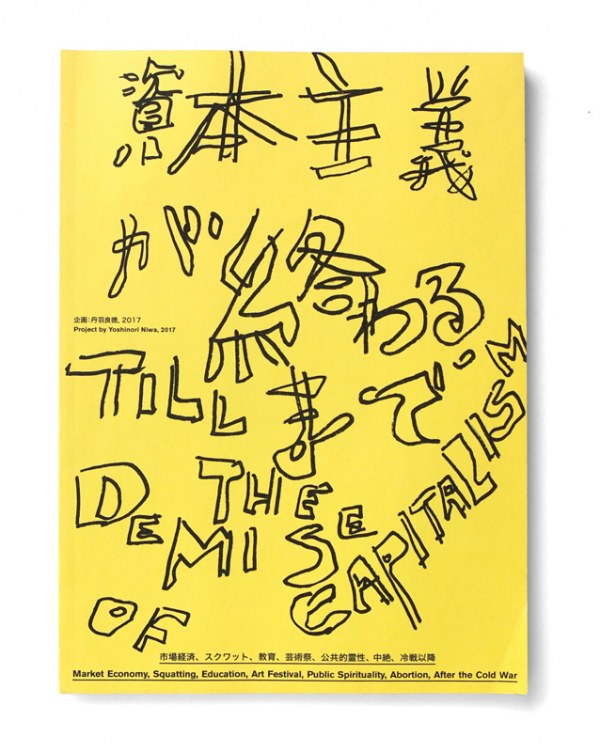 資本主義
が終わる
企画:丹羽良徳, 2017
Project by Yoshinori Niwa, 2017
まで
TILL
THE
DEMISE
OF
CAPITALISM
市場経済、スクワット、教育、芸術祭、公共的霊性、中絶、冷戦以降
Market Economy, Squatting, Education, Art Festival, Public Spirituality, Abortion, After the Cold War